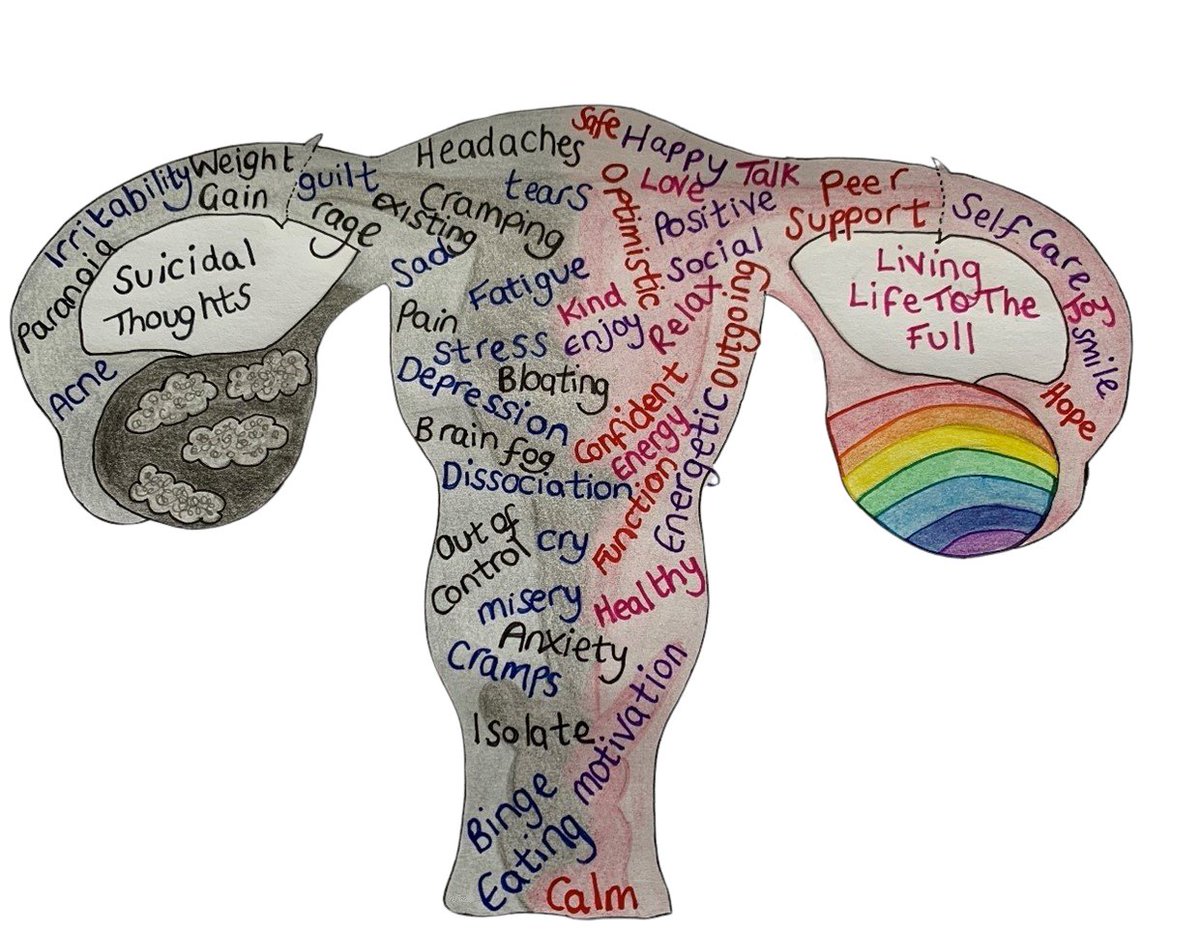 Irritability
Weight
Gain
guilt
rage
existing
Paranoia
Suicidal
Thoughts
Acne
Headaches
tears
Cramping
Sad
Fatigue
Pain
stress
Bloating
Depression
Brain fog
Dissociation
Out of
Control
cry
misery
Anxiety
Cramps
Isolate
Binge
Eating
Safe
Happy
Love
Talk
Optimistic
Positive
Peer
Support
Social
Kind
enjoy
Relax
Outgoing
Confident
Energy
Energetic
Function
Healthy
motivation
Calm
Self Care
Joy
smile
Hope
Living
Life To The
Full